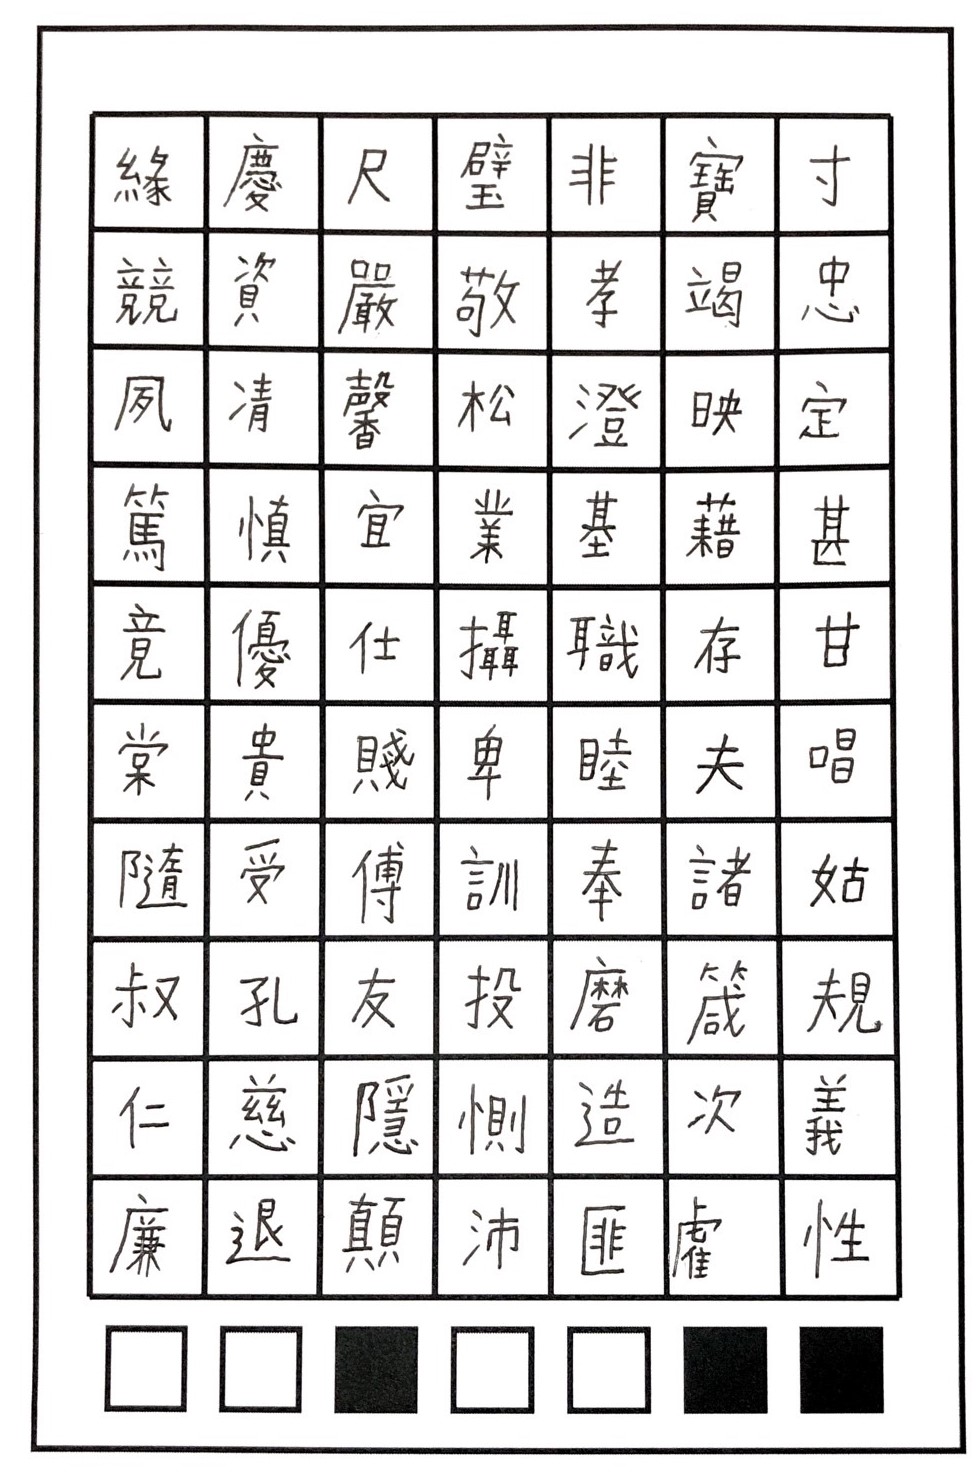 緣慶尺璧非寶寸
競資嚴敬孝竭忠
夙凊馨松澄映定
篤慎宜業基藉甚
竟優仕攝職存甘
棠貴賤卑睦夫唱
隨受傅訓奉諸姑
叔孔友投磨箴規
仁慈隱惻造次義
廉退顛沛匪雐性